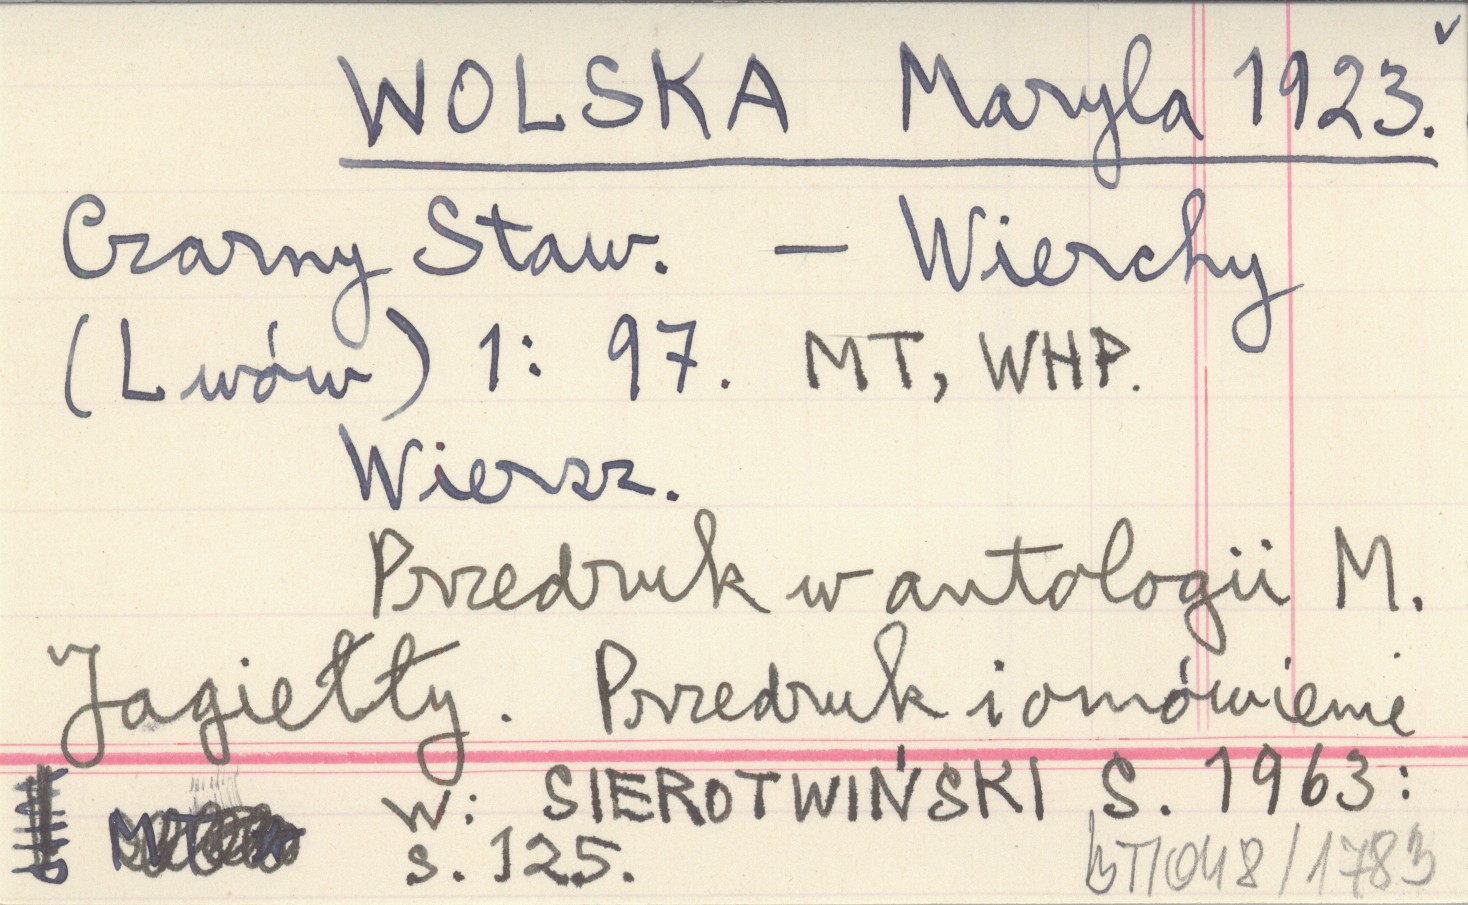 WOLSKA Maryla 1923.
Czarny Staw. — Wierchy
(Lwów) 1: 97. MT, WHP.
Wiersz.
Przedruk w antologii M.
Jagiełły. Przedruk i omówienie
w: SIEROTWIŃSKI S. 1963:
s. 125.
BT/048/1783